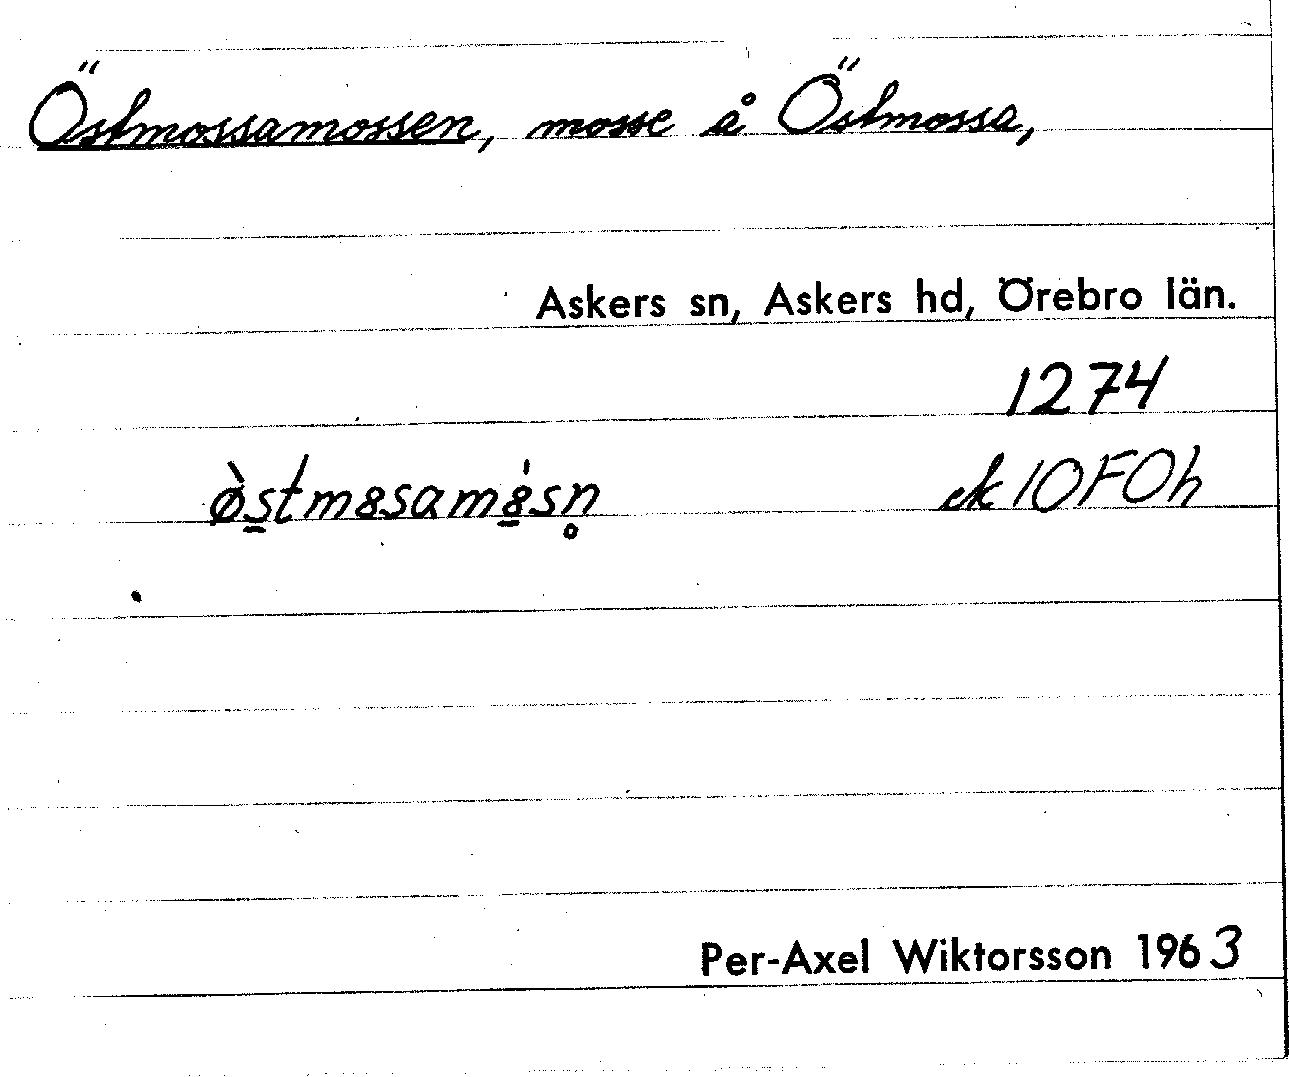 Östmossamossen, mosse å Östmossa,
Askers sn, Askers hd, Örebro län.
1274
ø̀s̠tm8samˈ8̠sn̥
ek 10F0h
Per-Axel Wiktorsson 1963